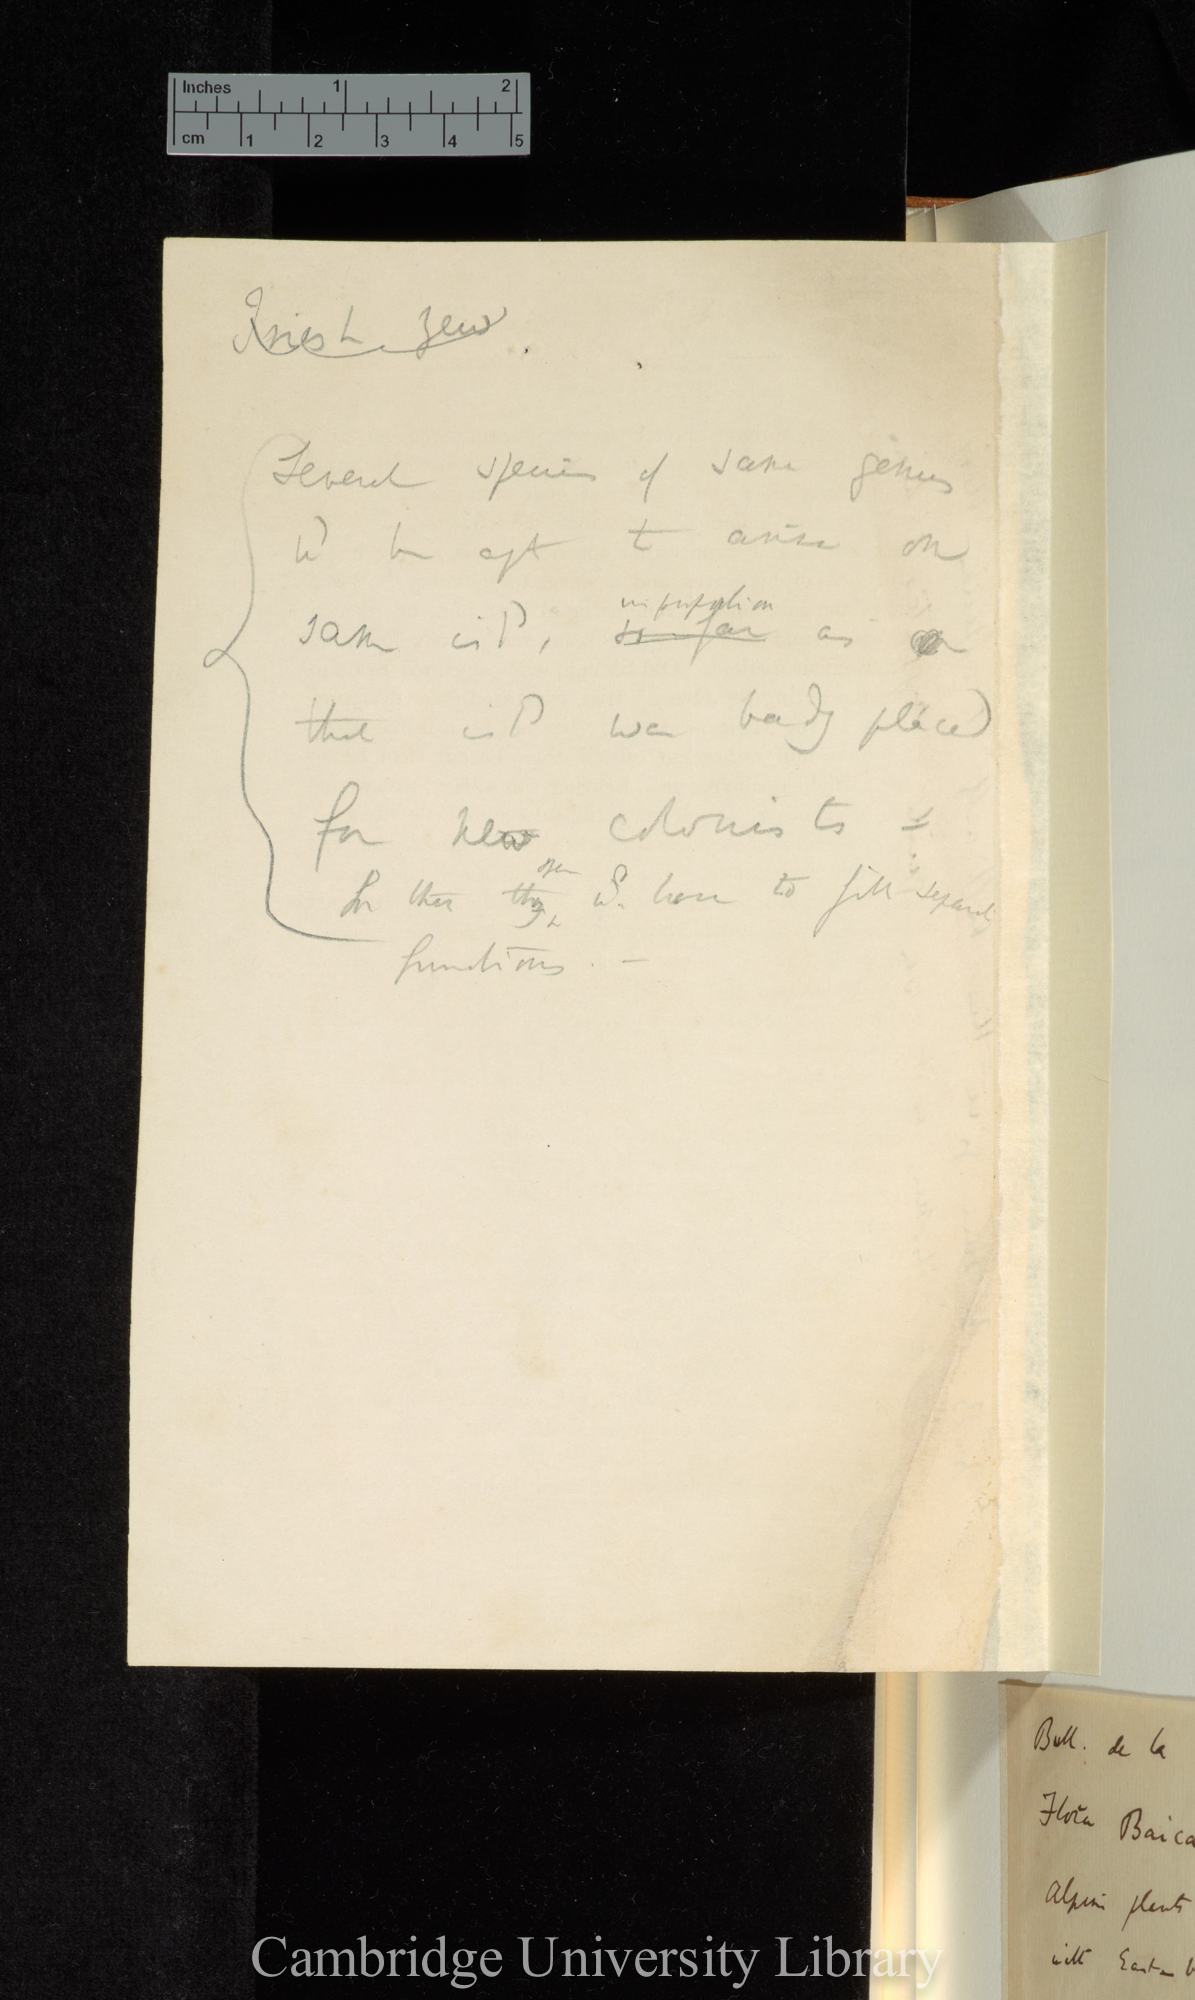 Inches 1 2
cm 1 2 3 4 5
Several species of same genus
wd be apt to arise on
same isld, in proportion
so far as
that isld was badly placed
for new colonists =
for then they often wd. have to fill separate
functions. —
Bull. de la
Flora Baica
Alpine plants
with Eastern
Cambridge University Library